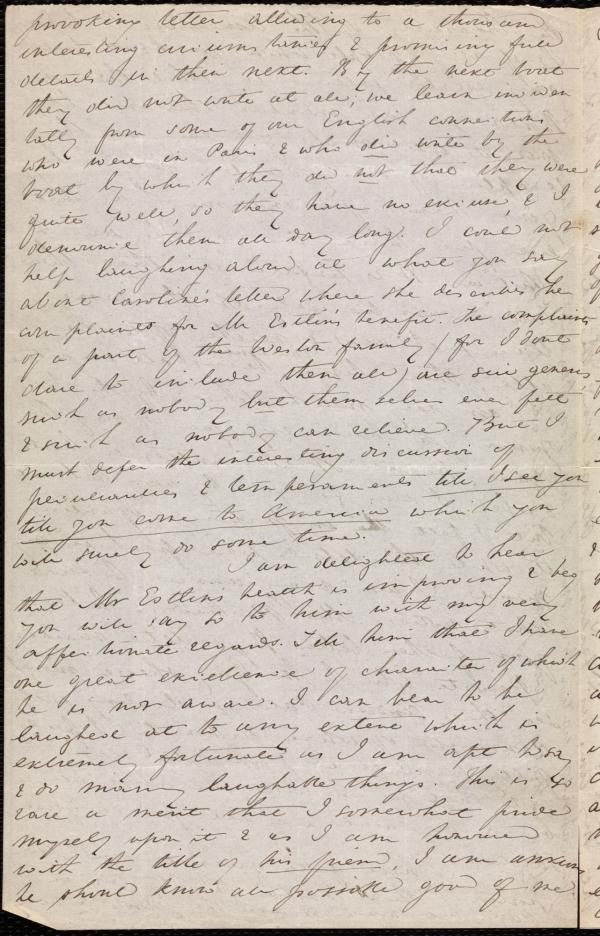 provoking letter alluding to a thousand
interesting circumstances & promising full
details in their next. By the next boat
they did not write at all; we learn inciden
tally from some of our English connections
who were in Paris & who did write by the
boat by which they did not that they were
quite well, so they have no excuse, & I
denounce them all day long. I could not
help laughing aloud at what you say
about Caroline's letter where she describes her
complaints for Mr Estlin's benefit. The complaints
of a part of the Weston family (for I dont
dare to include them all) are sui generis
such as nobody but themselves ever felt
& such as nobody can relieve. But I
must defer the interesting discussion of
peculiarities & temperaments till I see you
till you come to America which you
will surely do some time.
I am delighted to hear
that Mr Estlin's health is improving & beg
you will say so to him with my very
affectionate regards. Tell him that I have
one great excellence of character of which
he is not aware. I can bear to be
laughed at to any extent which is
extremely fortunate as I am apt to say
& do many laughable things. This is so
rare a merit that I somewhat pride
myself upon it & as I am honoured
with the title of his friend, I am anxious
he should know all possible good of me.